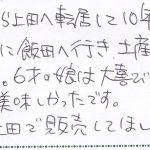 ら上田へ転居して10年
に飯田へ行き、土産
。6才の娘は大喜び
美味しかったです。
田で販売してほし